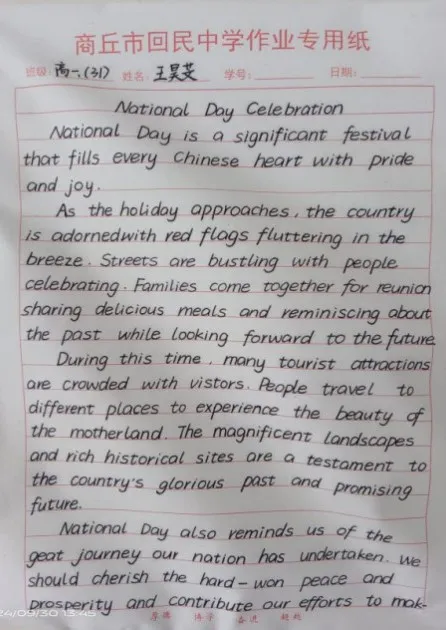 商丘市回民中学作业专用纸
班级: 高一.(31) 姓名: 王昊 学号: 日期:
National Day Celebration
National Day is a significant festival
that fills every Chinese heart with pride
and joy.
As the holiday approaches, the country
is adornedwith red flags fluttering in the
breeze. Streets are bustling with people
celebrating. Families come together for reunion
sharing delicious meals and reminiscing about
the past while looking forward to the future.
During this time, many tourist attractions
are crowded with vistors. People travel to
different places to experience the beauty of
the motherland. The magnificent landscapes
and rich historical sites are a testament to
the country's glorious past and promising
future.
National Day also reminds us of the
geat journey our nation has undertaken. We
should cherish the hard-won peace and
prosperity and contribute our efforts to mak-
24/09/30 13:45 厚德 博学 奋进